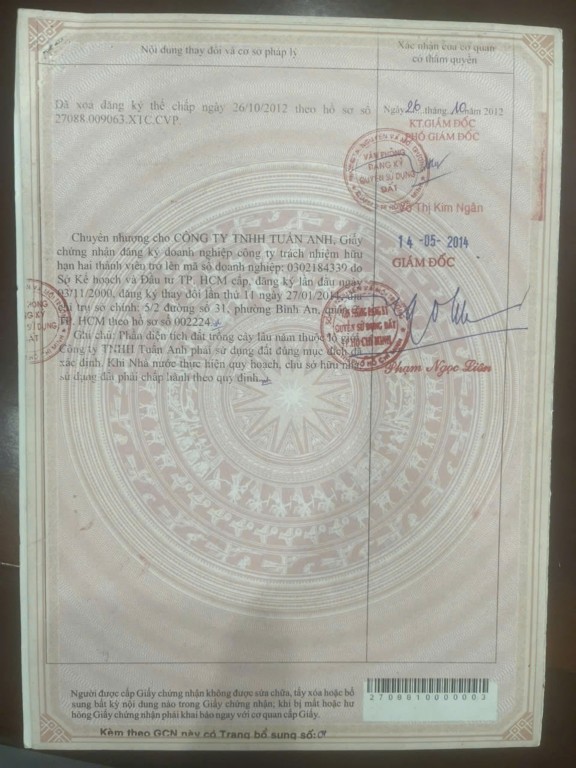 Nội dung thay đổi và cơ sở pháp lý
Xác nhận của cơ quan
có thẩm quyền
Đã xóa đăng ký thế chấp ngày 26/10/2012 theo hồ sơ số
27088.009063.XTC.CVP.
Ngày 26 tháng 10 năm 2012
KT.GIÁM ĐỐC
PHÓ GIÁM ĐỐC
VĂN PHÒNG
ĐĂNG KÝ
QUYỀN SỬ DỤNG
ĐẤT
Võ Thị Kim Ngân
Chuyển nhượng cho CÔNG TY TNHH TUẤN ANH, Giấy
chứng nhận đăng ký doanh nghiệp công ty trách nhiệm hữu
hạn hai thành viên trở lên mã số doanh nghiệp: 0302184339 do
Sở Kế hoạch và Đầu tư TP. HCM cấp, đăng ký lần đầu ngày
03/11/2000, đăng ký thay đổi lần thứ 11 ngày 27/01/2014, địa
chỉ trụ sở chính: 5/2 đường số 31, phường Bình An, quận
TP. HCM theo hồ sơ số 002224
Ghi chú: Phần diện tích đất trồng cây lâu năm thuộc lộ giới,
Công ty TNHH Tuấn Anh phải sử dụng đất đúng mục đích đã
xác định. Khi Nhà nước thực hiện quy hoạch, chủ sở hữu nhà,
sử dụng đất phải chấp hành theo quy định
14-05-2014
GIÁM ĐỐC
QUYỀN SỬ DỤNG ĐẤT
Phạm Ngọc Liên
Người được cấp Giấy chứng nhận không được sửa chữa, tẩy xóa hoặc bổ
sung bất kỳ nội dung nào trong Giấy chứng nhận; khi bị mất hoặc hư
hỏng Giấy chứng nhận phải khai báo ngay với cơ quan cấp Giấy.
2708810000003
Kèm theo GCN này có Trang bổ sung số: 01